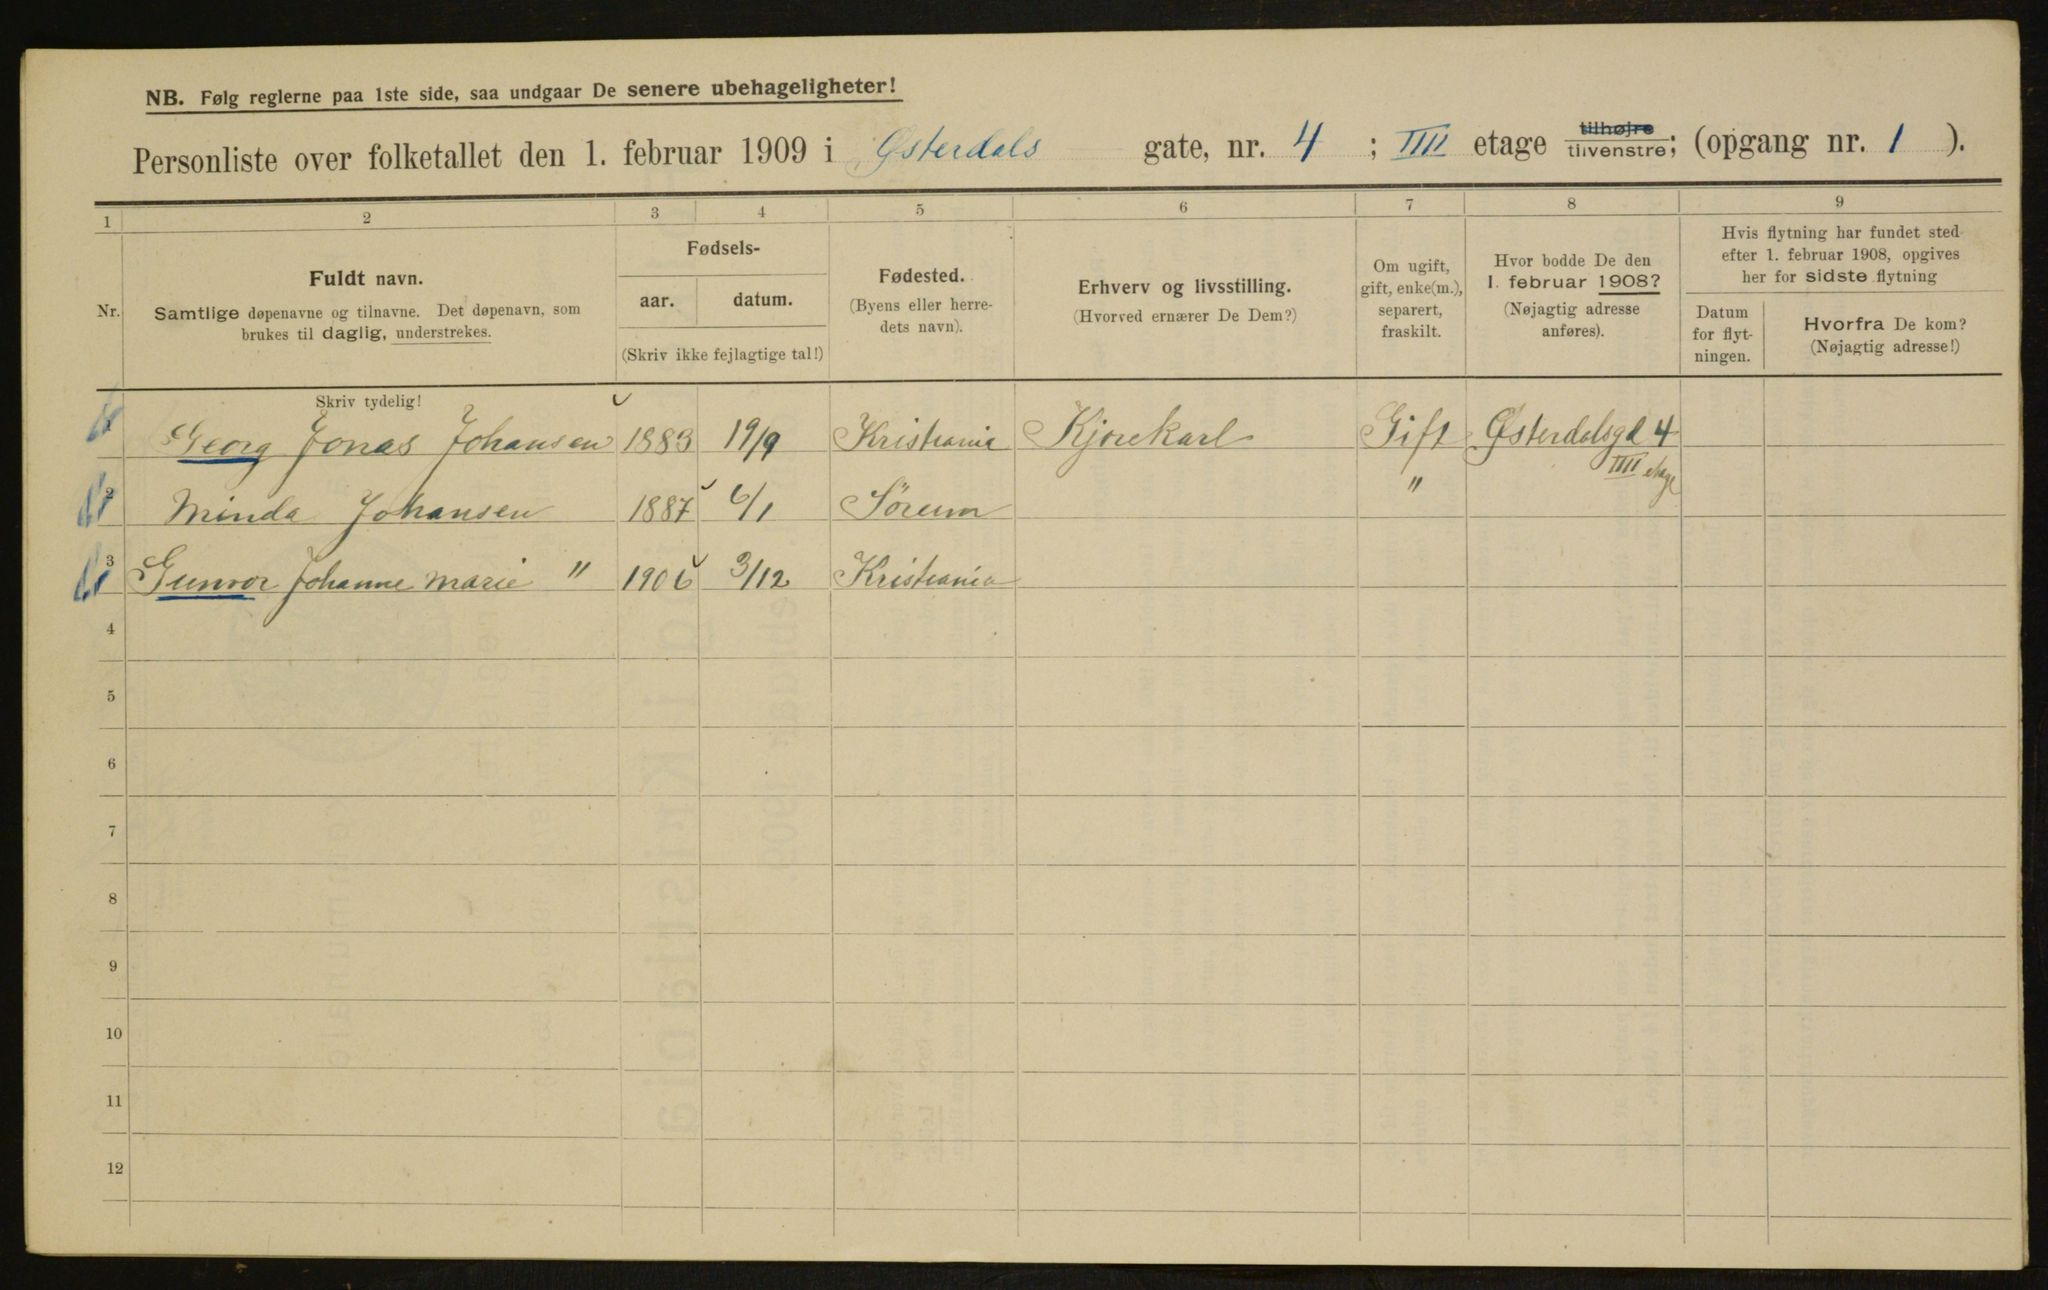 NB. Følg reglerne paa 1ste side, saa undgaar De senere ubehageligheter!
Personliste over folketallet den 1. februar 1909 i Østerdals gate, nr. 4 ; IIII etage tilhøjre tilvenstre; (opgang nr. 1 ).
1 2 3 4 5 6 7 8 9
Nr.
Fuldt navn.
Samtlige døpenavne og tilnavne. Det døpenavn, som
brukes til daglig, understrekes.
Fødsels-
aar. datum.
(Skriv ikke fejlagtige tal!)
Fødested.
(Byens eller herre-
dets navn).
Erhverv og livsstilling.
(Hvorved ernærer De Dem?)
Om ugift,
gift, enke(m.),
separert,
fraskilt.
Hvor bodde De den
1. februar 1908?
(Nøjagtig adresse
anføres).
Hvis flytning har fundet sted
efter 1. februar 1908, opgives
her for sidste flytning
Datum
for flyt-
ningen.
Hvorfra De kom?
(Nøjagtig adresse!)
Skriv tydelig!
1 Georg Jonas Johansen 1883 19/9 Kristiania Kjørekarl Gift Østerdalsgd 4
IIII etage
2 Minda Johansen 1887 6/1 Sörum "
3 Gunvor Johanne Marie " 1906 3/12 Kristiania
4
5
6
7
8
9
10
11
12